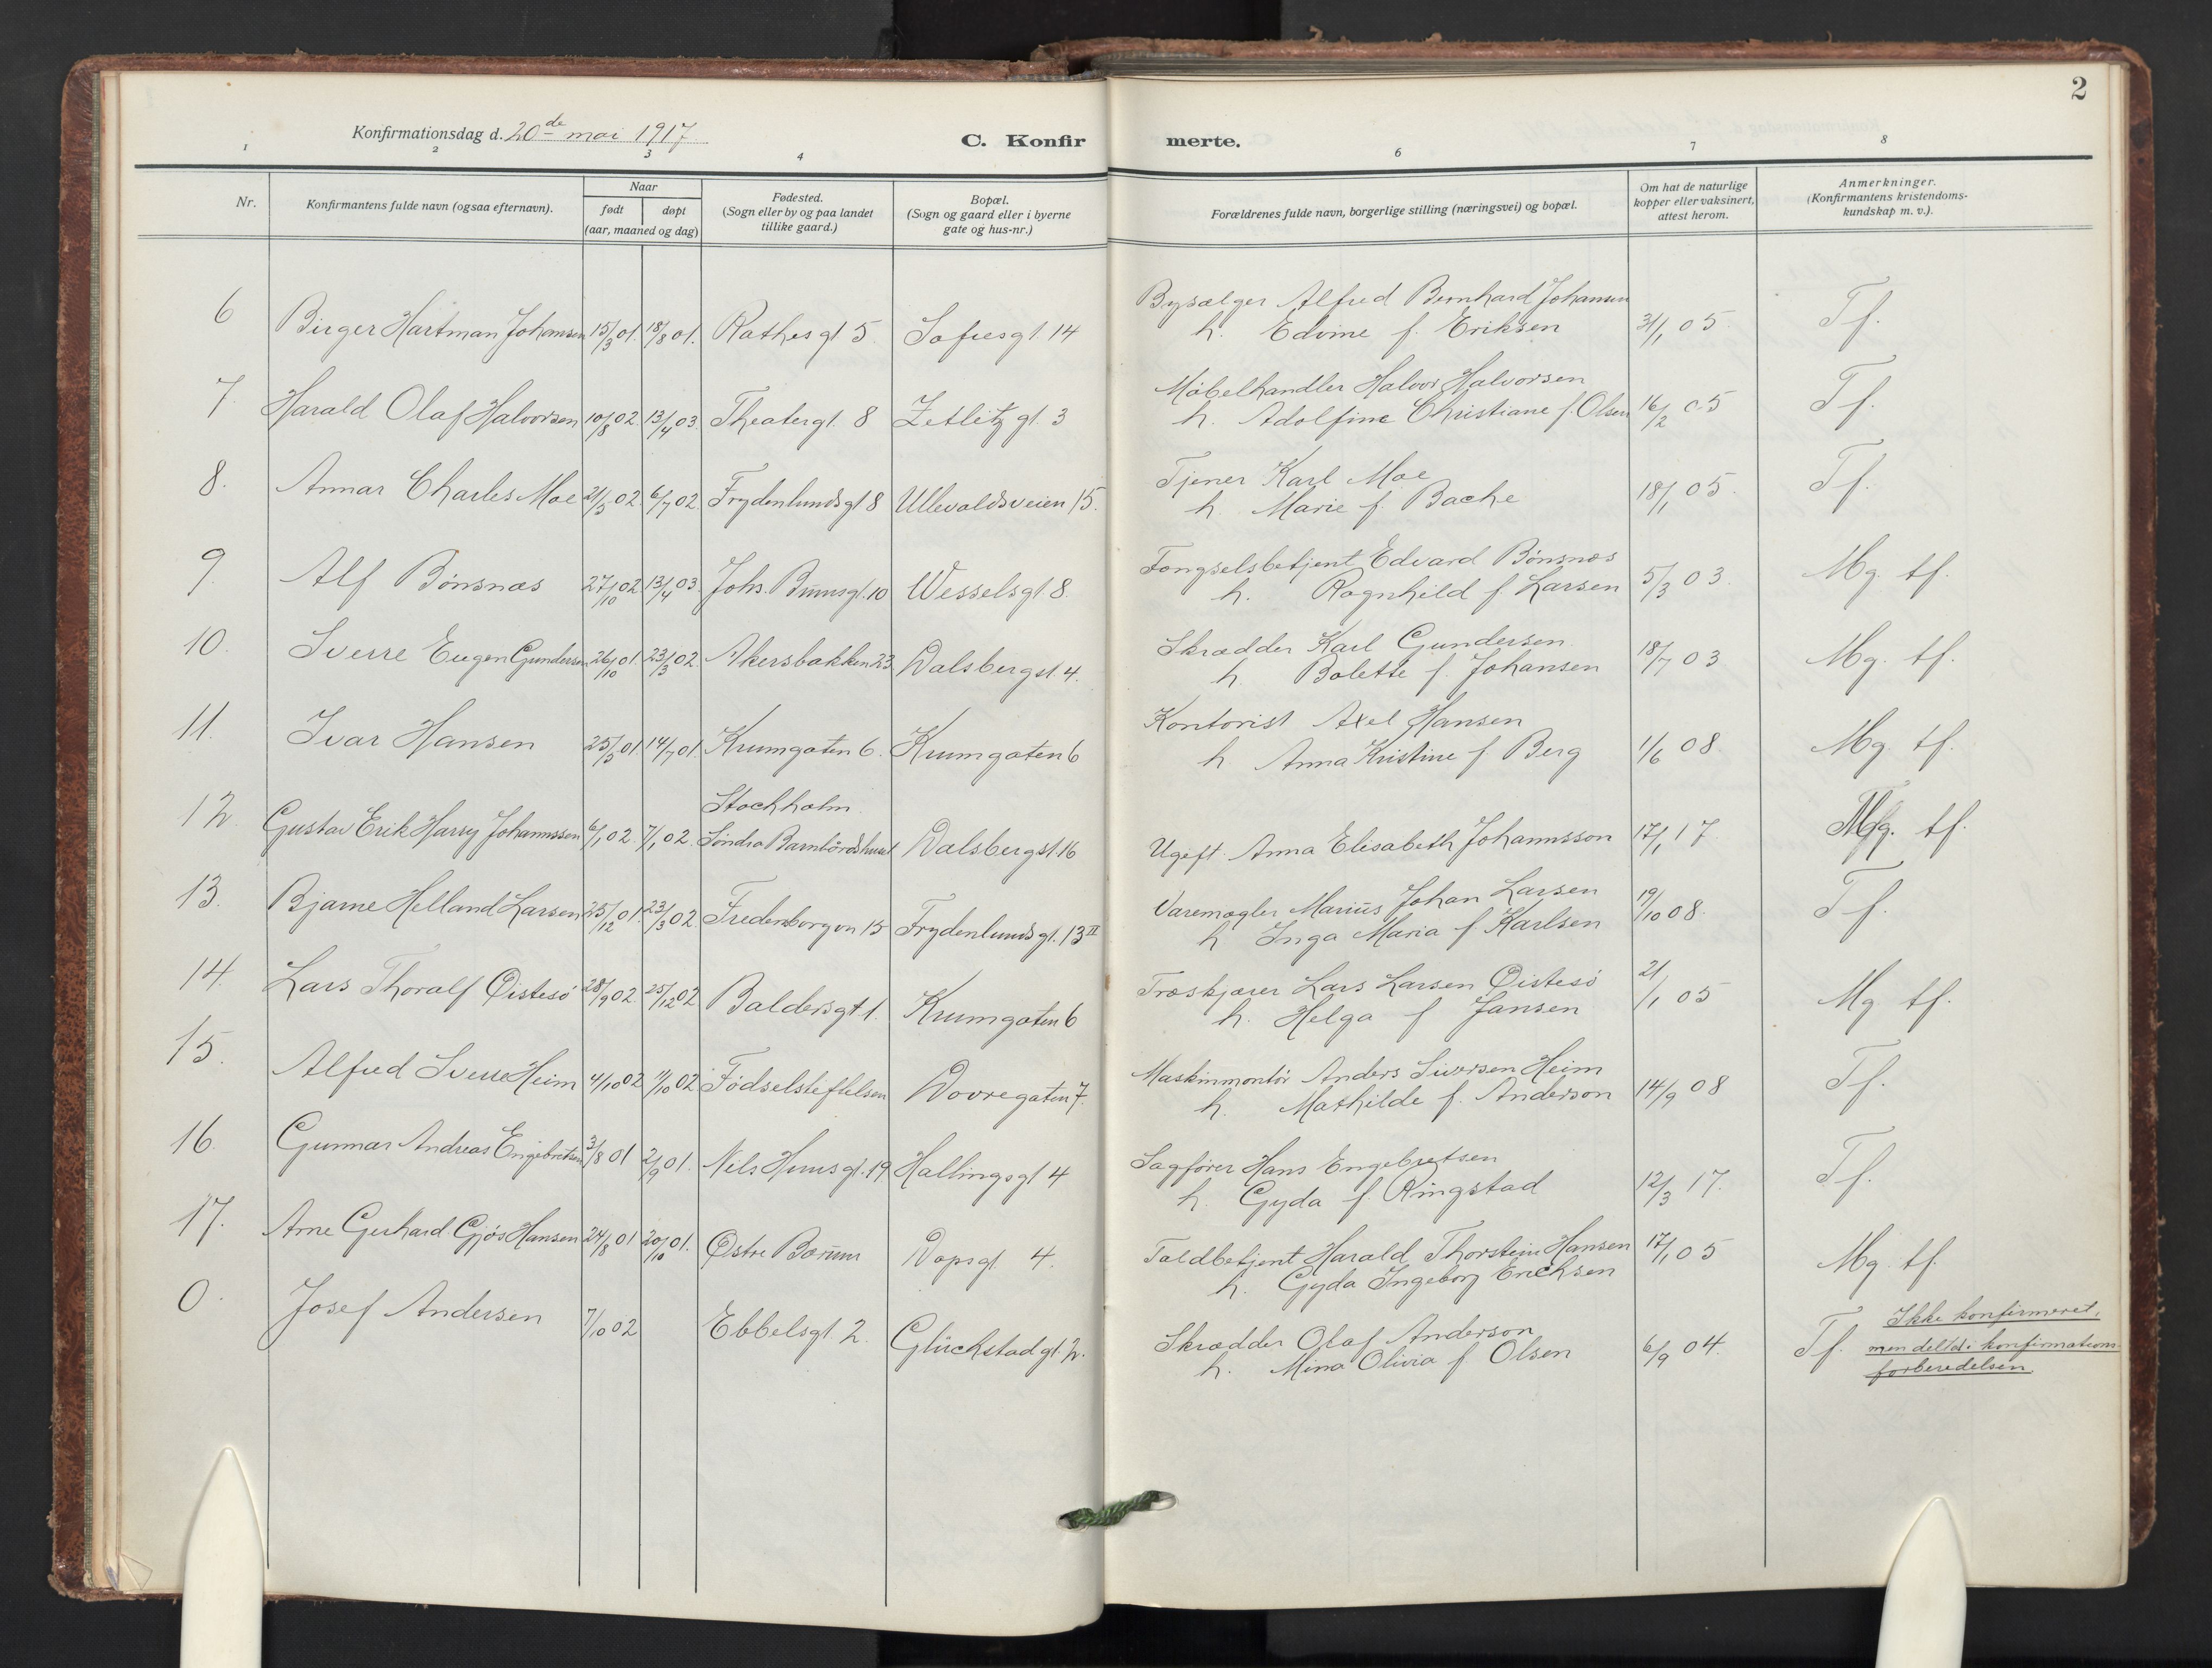 2
Konfirmationsdag d. 20de mai 1917
C. Konfirmerte.
1 2 3 4 6 7 8
Nr.
Konfirmantens fulde navn (ogsaa efternavn).
Naar
født døpt
(aar, maaned og dag)
Fødested.
(Sogn eller by og paa landet
tillike gaard.)
Bopæl.
(Sogn og gaard eller i byerne
gate og hus-nr.)
Forældrenes fulde navn, borgerlige stilling (næringsvei) og bopæl.
Om hat de naturlige
kopper eller vaksinert,
attest herom.
Anmerkninger.
(Konfirmantens kristendoms-
kundskap m. v.).
6 Birger Hartman Johansen 15/3 01. 18/8 01. Rathesgt 5 Sofiesgt. 14 Bysælger Alfred Bernhard Johansen 31/1 05. Tf.
h. Edvine f. Eriksen
7. Harald Olaf Halvorsen 10/8 02. 13/4 03. Theatergt. 8 Zetlitz gt. 3 Møbelhandler Halvor Halvorsen 16/2 05 Tf.
h. Adolfine Christiane f. Olsen
8. Annar Charles Moe 21/5 02. 6/7 02. Frydenlundsgt 8 Ullevoldsveien 15. Tjener Karl Moe 18/1 05. Tf.
h. Marie f. Bache
9. Alf Bönsnæs 27/10 02. 13/4 03. Johs. Bruunsgt. 10 Wesselsgt. 8. Fængselsbetjent Edvard Bönsnæs 5/3 03 Mg. tf.
h. Ragnhild f. Larsen
10. Sverre Eugen Gundersen 26/10 01. 23/3 02. Akersbakken 23. Dalsbergst. 4. Skrædder Karl Gundersen 18/7 03 Mg. tf.
h. Bolette f. Johansen
11. Ivar Hansen 25/5 01. 14/7 01. Krumgaten 6. Krumgaten 6 Kontorist Axel Hansen 1/6 08 Mg. tf.
h. Anna Kristine f. Berg
Stockholm
12 Gustav Erik Harry Johannssen 6/1 02. 7/1 02. Söndra Barnbördshuset Dalsbergst. 16 Ugift Anna Elisabeth Johannsson 17/1 17 Mg. tf.
13. Bjarne Helland Larsen 25/12 01. 23/3 02. Fredensborgvn 15 Frydenlundsgt. 13 II Varemægler Marius Johan Larsen 19/10 08. Tf.
h Inga Maria f Karlsen
14. Lars Thoralf Øistesö 28/9 02. 25/12 02 Baldersgt. 1. Krumgaten 6 Træskjærer Lars Larsen Øistesö 21/1 05 Mg tf.
h. Helga f Jansen
15. Alfred Sverre Heim 4/10 02 11/10 02 Födselsstiftelsen Dovregaten 7. Maskinmontör Anders Siversen Heim 14/9 08 Tf.
h. Mathilde f. Anderson
16. Gunnar Andreas Engebretsen 3/8 01 2/9 01. Nils Huusgt. 19 Hallingsgt 4 Sagfører Hans Engebretsen 12/3 17. Tf.
h. Gyda f. Ringstad
17. Arne Gerhard Gjøs Hansen 24/8 01 20/10 01. Østre Bærum Dopsgt. 4. Toldbetjent Harald Thorstein Hansen 17/1 05 Mg. tf.
h. Gyda Ingeborg Erichsen
0. Josef Andersen 7/10 02 Ebbelsgt. 2. Glückstadgt. 2. Skrædder Olaf Anderson 6/9 04. Tf. Ikke konfirmeret,
h. Mina Olivia f Olsen men deltd. i konfirmations-
forberedelsen.